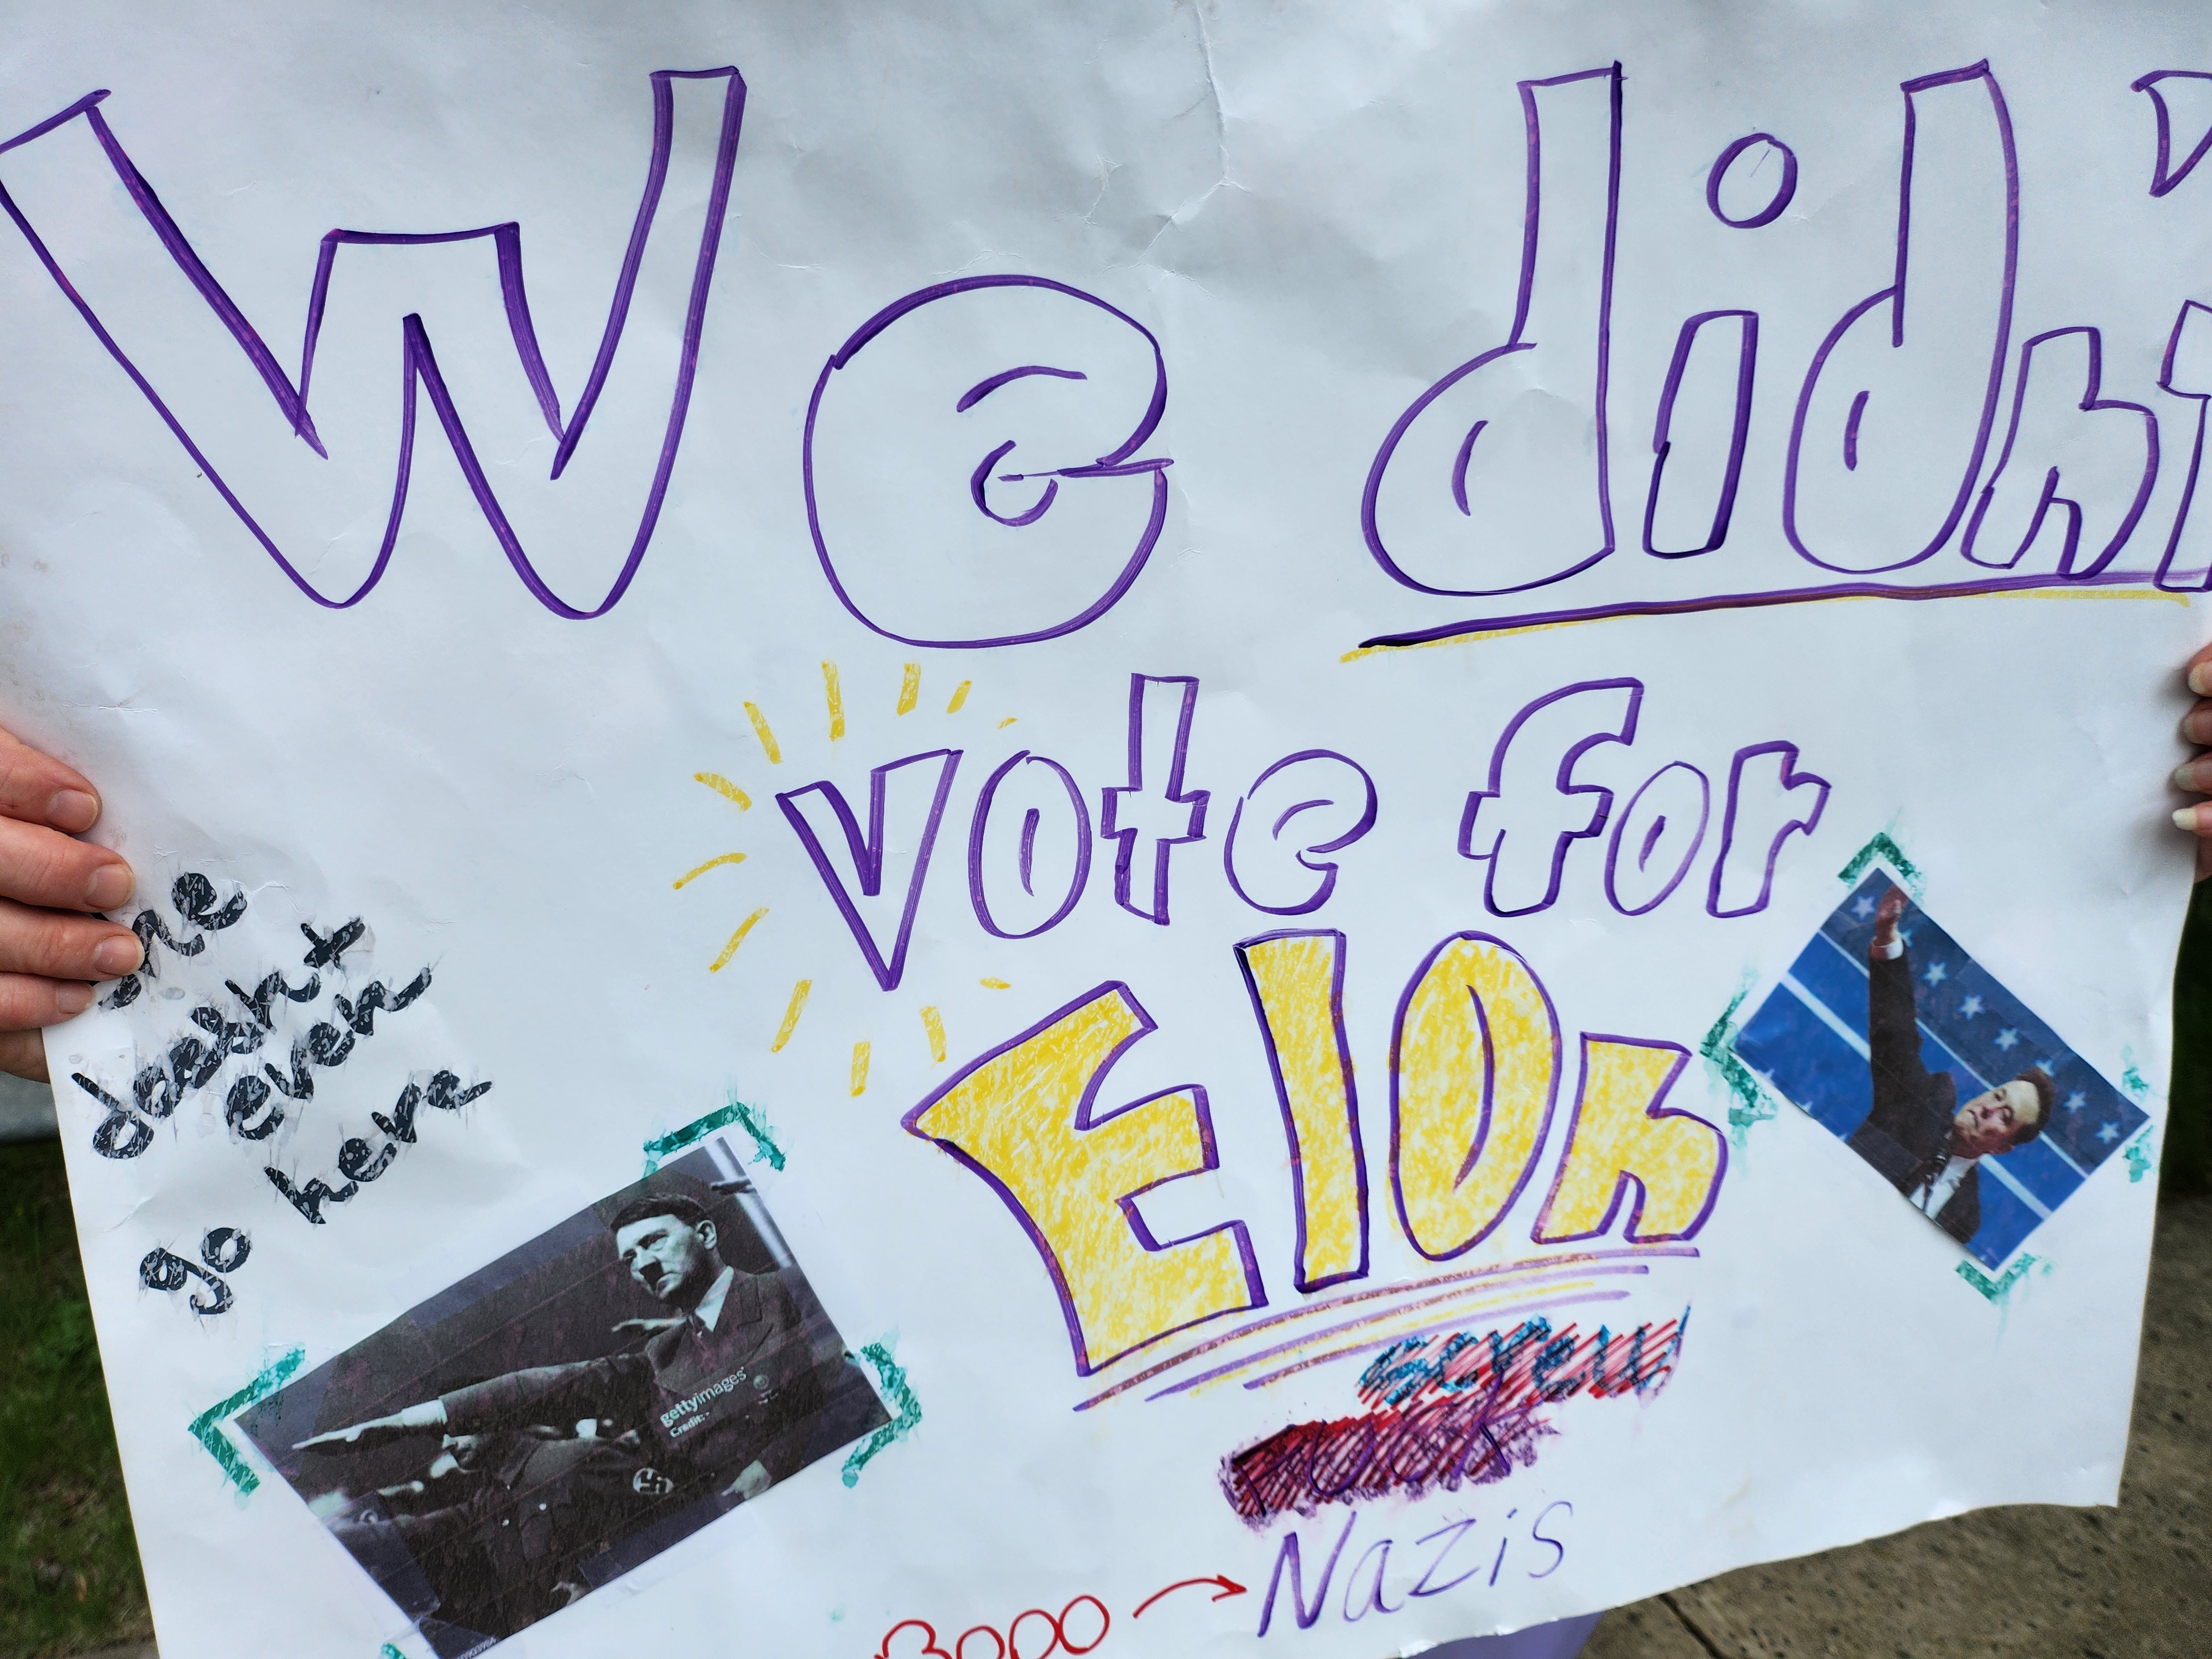 We didn't
vote for
Elon
he
doesn't
even
go here
gettyimages
Credit:
screw
FUCK
Nazis
Booo